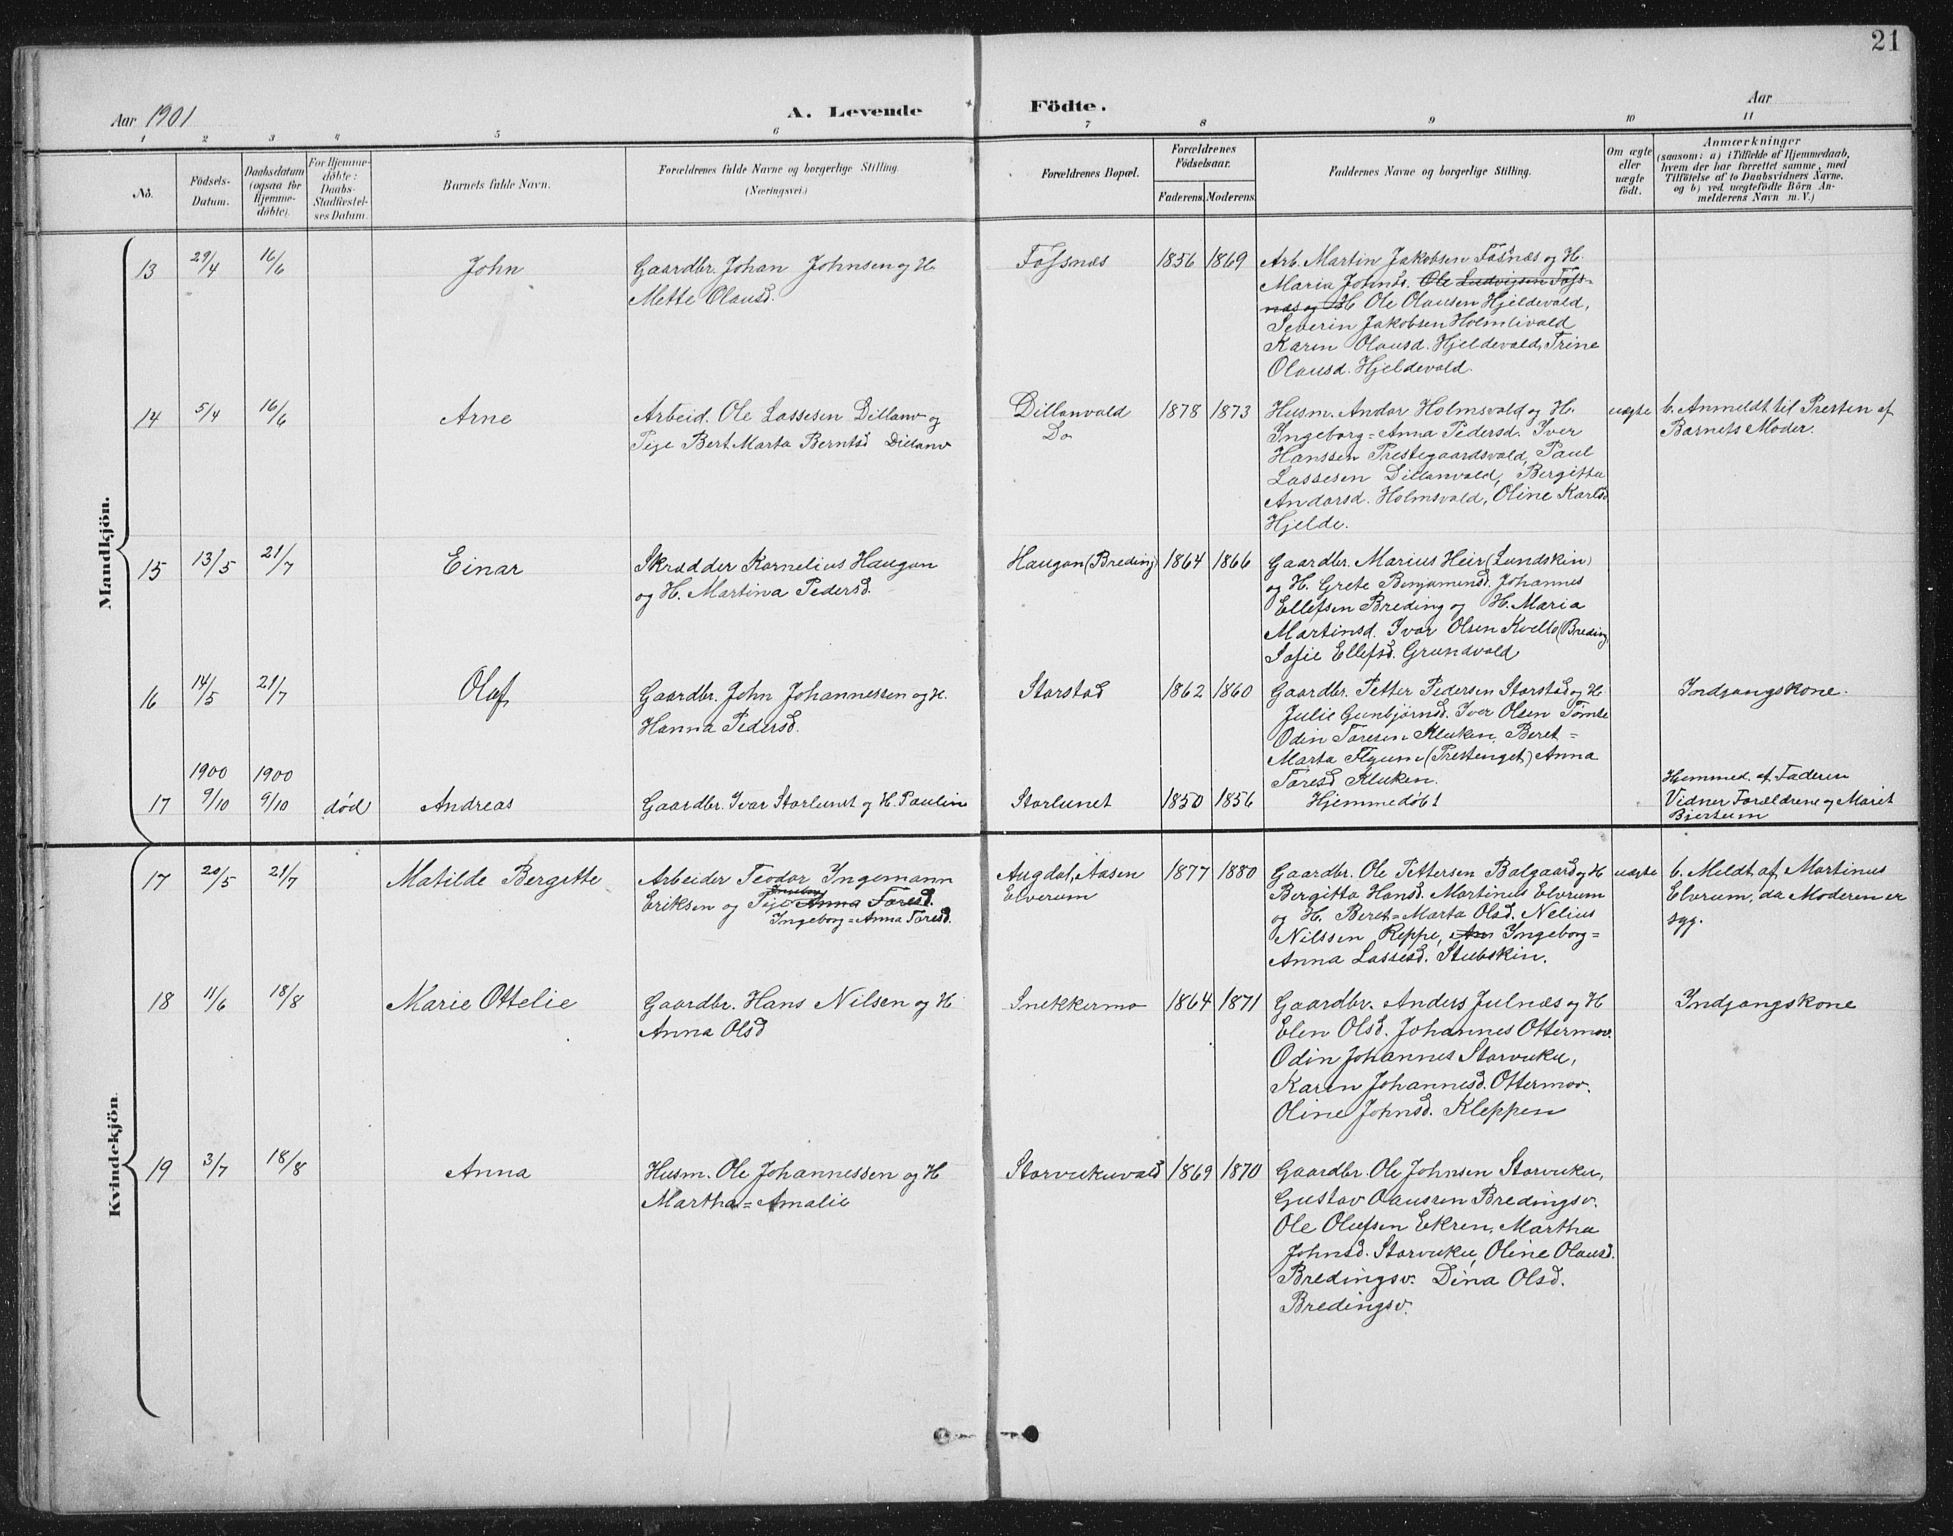 21
Aar 1901
A. Levende
Födte.
Aar
1 2 3 4 5 6 7 8 9 10 11
No.
Födsels-
Datum.
Daabsdatum
(ogsaa for
Hjemme-
döbte).
For Hjemme-
döbte:
Daabs-
Stadfæstel-
ses Datum.
Barnets fulde Navn.
Forældrenes fulde Navne og borgerlige Stilling.
(Næringsvei.)
Forældrenes Bopæl.
Forældrenes
Födselsaar.
Faderens. Moderens.
Faddernes Navne og borgerlige Stilling.
Om ægte
eller
uægte
födt.
Anmærkninger
(saasom: a) i Tilfælde af Hjemmedaab,
hvem der har forrettet samme, med
Tilföielse af to Daabsvidners Navne,
og b) ved uægtefödte Börn An-
melderens Navn m. V.)
Mandkjön.
13 29/4 16/6
John
Gaardbr. Johan Johnsen og H.
Mette Olausd.
Fossnæs
1856 1869
Arb. Martin Jakobsen Fosnæs og H.
Maria Johnsd. Ole Ludvigsen Foss-
næs og H Ole Olausen Hjeldevald,
Severin Jakobsen Holmlivald
Karen Olausd. Hjeldevald, Trine
Olausd. Hjeldevald.
14 5/4 16/6
Arne
Arbeid. Ole Lassesen Dillanv og
Pige Bert Marta Berntsd Dillanv
Dillanvald
Do
1878 1873
Husm. Andor Holmsvald og H.
Ingeborg=Anna Pedersd. Iver
Hanssen Prestegaardsvald, Paul
Lassesen Dillanvald, Bergitta
Andorsd. Holmsvald, Oline Karlsd
Hjelde.
uægte
b. Anmeldt til Presten af
Barnets Moder.
15 13/5 21/7
Einar
Skrædder Kornelius Haugan
og H. Martina Pedersd.
Haugan (Breding)
1864 1866
Gaardbr. Marius Heir (Lundskin)
og H. Grete Benjaminsd. Johannes
Ellefsen Breding og H. Maria
Martinsd. Ivar Olsen Kvello (Breding
Sofie Ellefsd. Grundvald
16 14/5 21/7
Olaf
Gaardbr. John Johannessen og H.
Hanna Pedersd.
Storstad
1862 1860
Gaardbr. Petter Pedersen Storstad og H
Julie Gunbjørnsd. Iver Olsen Tømte
Odin Toresen Kluken, Beret=
Marta Flyum (Prestenget) Anna
Toresd Kluken.
Indgangskone.
17 1900 9/10 1900 9/10 død
Andreas
Gaardbr. Ivar Storlunet og H. Paulin
Storlunet
1850 1856
Hjemmedøbt
Hemmed. af Faderen
Vidner Forældrene og Maret
Bjertum
Kvindekjön.
17 20/5 21/7
Matilde Bergitte
Arbeider Teodor Ingemann
Ingeborg
Eriksen og Pige Anna Toresd.
Ingeborg=Anna Toresd.
Augdal, Aasen
Elverum
1877 1880
Gaardbr. Ole Pettersen Balgaard og H
Bergitta Hansd. Martinus Elvrum
og H. Beret=Marta Olsd. Nelius
Nilssen Reppe, An Ingeborg=
Anna Lassesd. Stubskin.
uægte
b. Meldt af Martinus
Elvrum, da Moderen er
syg.
18 11/6 18/8
Marie Ottelie
Gaardbr. Hans Nilsen og H
Anna Olsd
Snekkermo
1864 1871
Gaardbr. Anders Julnæs og H
Elen Olsd. Johannes Ottermov.
Odin Johannes Storvuku,
Karen Johannesd. Ottermov.
Oline Johnsd. Kleppen
Indgangskone
19 3/7 18/8
Anna
Husm. Ole Johannessen og H
Martha=Amalie
Storvukuvald
1869 1870
Gaardbr. Ole Johnsen Storvuku,
Gustav Olaussen Bredingsv.
Ole Olufsen Ekren, Martha
Johnsd. Storvuku, Oline Olausd.
Bredingsv. Dina Olsd.
Bredingsv.